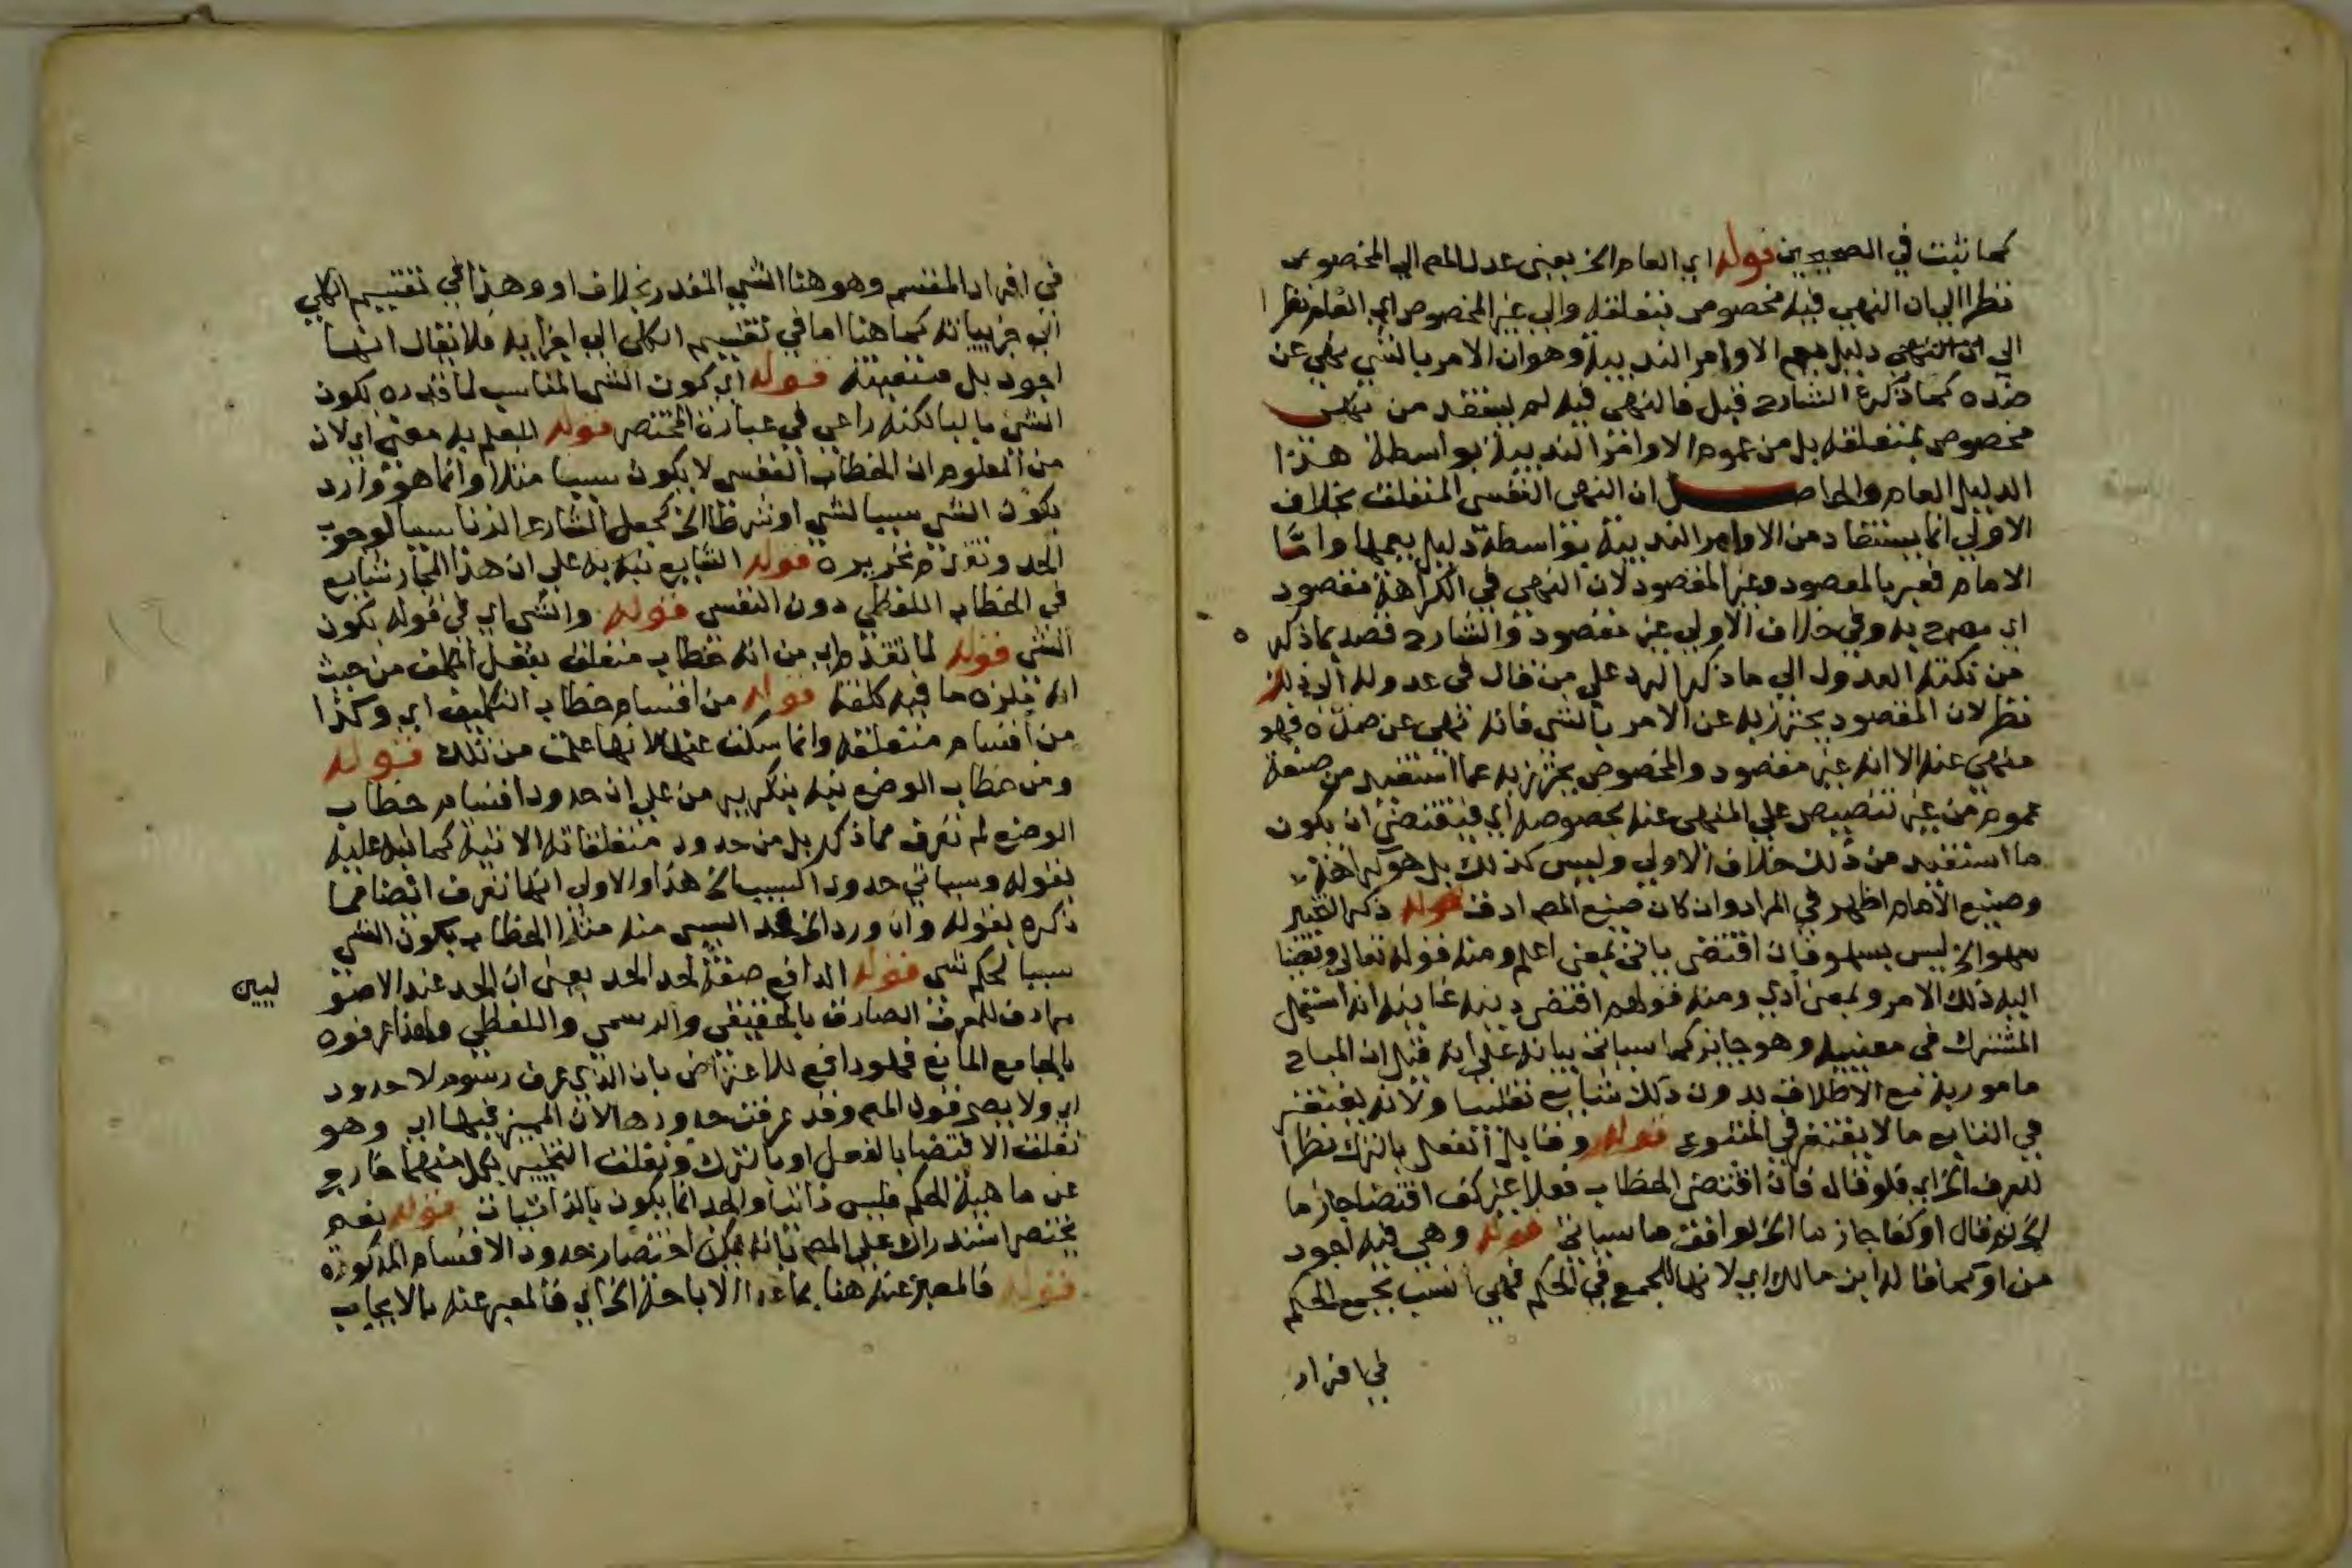 كما ثبت في الصحيحين قوله اي العام الخ يعني عدل المص الي المخصوص
نظرا الي ان النهي فيه مخصوص بمتعلقه والي غير المخصوص اي العام نظرا
الي ان النهي دليل يعم الاوامر الندبية وهو ان الامر بالشي نهي عن
ضده كما ذكره الشارح قيل فالنهي فيه لم يستفد من نهي
مخصوص بمتعلقه بل من عموم الاوامر الندبية بواسطة هذا
الدليل العام والحاصل ان النهي النفسي المتعلق بخلاف
الاولي انما يستفاد من الاوامر الندبية بواسطة دليل يعمها واما
الامام فعبر بالمقصود وغير المقصود لان النهي في الكراهة مقصود
اي مصرح به وفي خلاف الاولي غير مقصود والشارح قصد بما ذكره
من نكتة العدول الي ما ذكر الرد علي من قال في عدوله
نظر لان المقصود يحترز به عن الامر بالشي فانه نهي عن ضده فهو
منهي عنه الا انه غير مقصود والمخصوص يحترز به عما استفيد من صيغة
عموم من غير تنصيص علي المنهي عنه بخصوصه اي فيقتضي ان يكون
ما استفيد من ذلك خلاف الاولي وليس كذلك بل هو كراهة
وصنيع الامام اظهر في المراد وان كان صنيع المص ادق قوله ذكر التخيير
سهو الخ ليس بسهو فان اقتضي ياتي بمعني اعلم ومنه قوله تعالي وقضينا
اليه ذلك الامر وبمعني ادي ومنه قولهم اقتضي دينه غايته انه استعمل
المشترك في معنييه وهو جايز كما سياتي بيانه علي انه قيل ان المباح
مامور به مع الاطلاق بدون ذلك شايع تغليبا ولانه يغتفر
في التابع ما لا يغتفر في المتبوع قوله وقابل الفعل بالترك نظرا
للعرف الخ اي فلو قال فان اقتضي الخطاب فعلا غير كف اقتضا جازما
الخ ثم قال او كفا جازما الخ لوافق ما سياتي قوله وهي فيه اجود
من او كما قاله ابن مالك اي لانها للجمع في الحكم فهي انسب بجمع الحكم
في افراد
في افراد المقسم وهو هنا الشي المقدر بخلاف او وهذا في تقسيم الكلي
الي جزيياته كما هنا اما في تقسيم الكلي الي اجزايه فلا يقال انها
اجود بل متعينة قوله اي كون الشي المناسب لما قدره بكون
الشي بالبا لكنه راعي في عبارة المختصر قوله للعلم به معني اي لان
من المعلوم ان الخطاب النفسي لا يكون سببا مثلا وانما هو وارد
بكون الشي سببا لشي او شرطا الخ كجعل الشارع الزنا سببا لوجوب
الحد وتقدم تحريره قوله الشايع نبه به علي ان هذا المجاز شايع
في الخطاب اللفظي دون النفسي قوله والشي اي في قوله بكون
الشي قوله لما تقدم اي من انه خطاب متعلق بفعل المكلف من حيث
انه ملزم ما فيه كلفة قوله من اقسام خطاب التكليف اي وكذا
من اقسام متعلقه وانما سكت عنها لانها علمت من تلك قوله
ومن خطاب الوضع نبه بتكرير من علي ان حدود اقسام خطاب
الوضع لم تعرف مما ذكر بل من حدود متعلقاته الاتية كما نبه عليه
بقوله وسياتي حدود السبب الخ هذا والاولي انها تعرف ايضا مما
ذكره بقوله وان ورد الخ فحد السببي منه مثلا الخطاب بكون الشي
سببا لحكم شي قوله الدافع صفة لحد الحد يعني ان الحد عند الاصو
ليين
مرادف للمعرف الصادق بالحقيقي والرسمي واللفظي ولهذا عرفوه
بالجامع المانع فهو دافع للاعتراض بان الذي عرف رسوم لا حدود
اي ولا يصح قول المص وقد عرفت حدودها لان المميز فيها اي وهو
تعلق الاقتضا بالفعل او بالترك وتعلق التخيير بكل منهما خارج
عن ماهية الحكم فليس ذاتيا والحد انما يكون بالذاتيات قوله نعم
يختصر استدراك علي المص بانه يمكن اختصار حدود الاقسام المذكورة
قوله فالمعبر عنه هنا بما عدا الاباحة الخ اي فالمعبر عنه بالايجاب